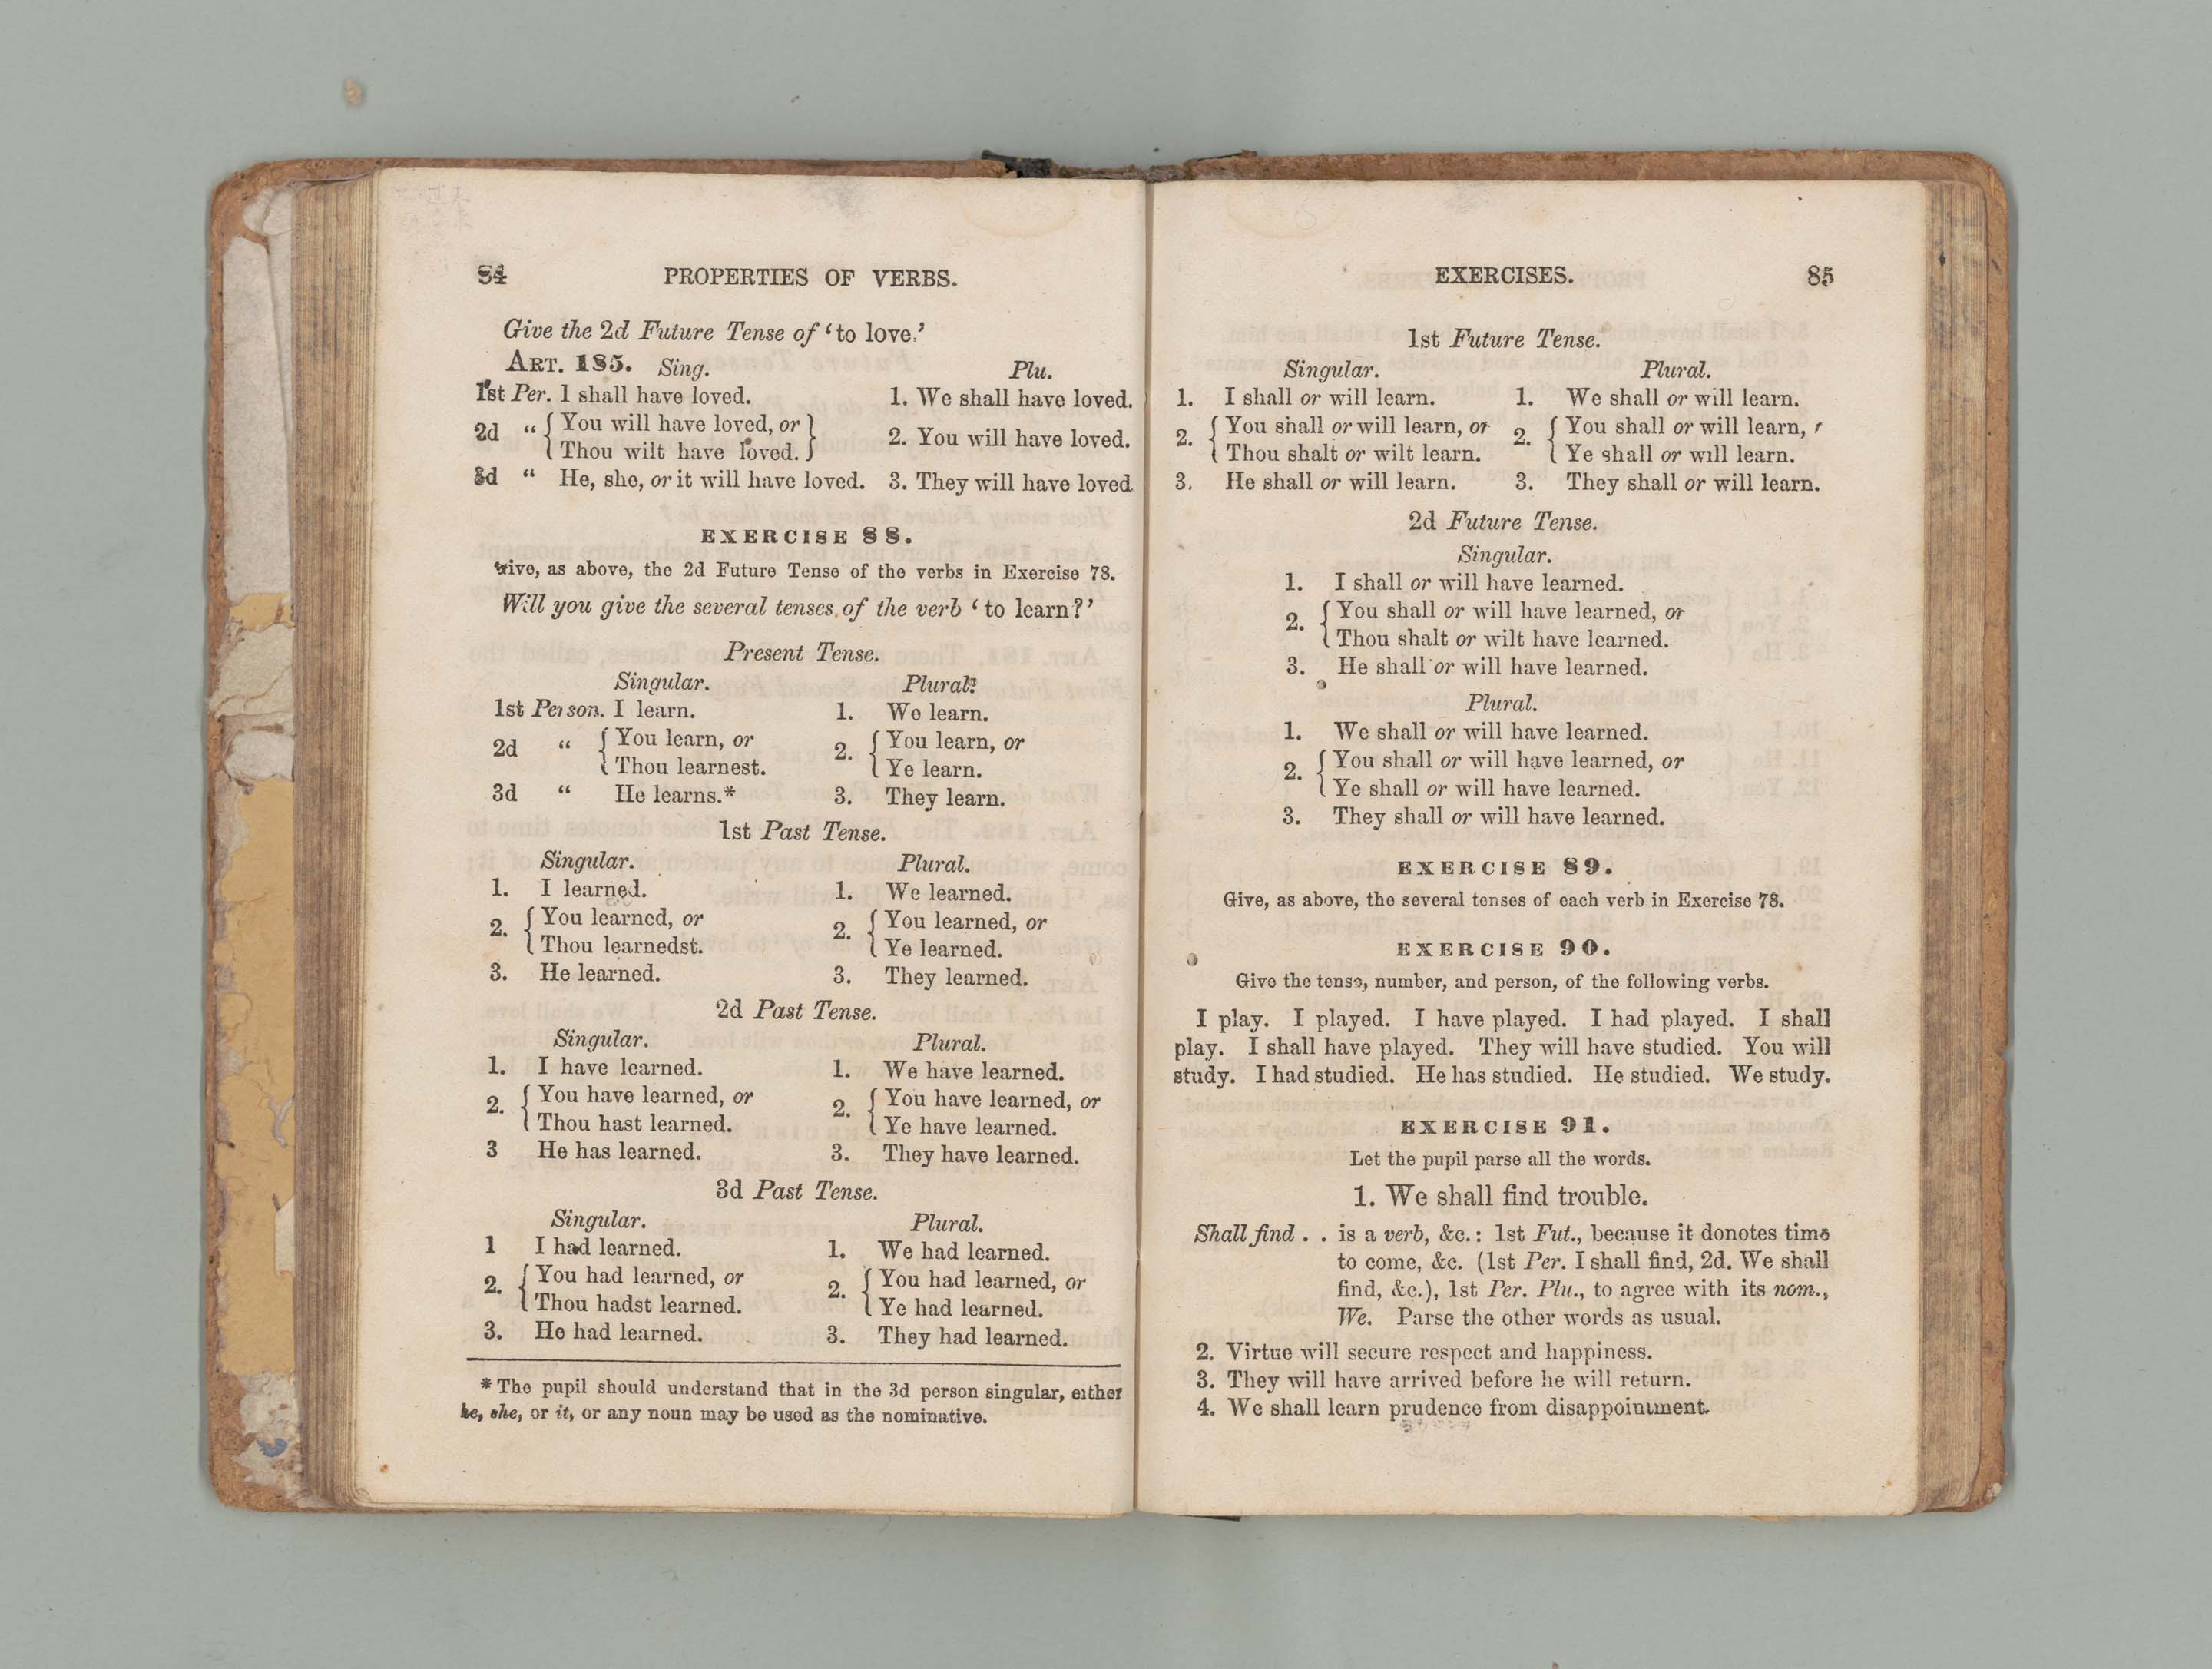 84 PROPERTIES OF VERBS.
Give the 2d Future Tense of ‘to love.’
ART. 185. Sing. Plu.
1st Per. I shall have loved. 1. We shall have loved.
2d “ { You will have loved, or } 2. You will have loved.
Thou wilt have loved.
3d “ He, she, or it will have loved. 3. They will have loved
EXERCISE 88.
Give, as above, the 2d Future Tense of the verbs in Exercise 78.
Will you give the several tenses of the verb ‘to learn?’
Present Tense.
Singular. Plural.
1st Person. I learn. 1. We learn.
2d “ { You learn, or 2. { You learn, or
Thou learnest. Ye learn.
3d “ He learns.* 3. They learn.
1st Past Tense.
Singular. Plural.
1. I learned. 1. We learned.
2. { You learned, or 2. { You learned, or
Thou learnedst. Ye learned.
3. He learned. 3. They learned.
2d Past Tense.
Singular. Plural.
1. I have learned. 1. We have learned.
2. { You have learned, or 2. { You have learned, or
Thou hast learned. Ye have learned.
3 He has learned. 3. They have learned.
3d Past Tense.
Singular. Plural.
1 I had learned. 1. We had learned.
2. { You had learned, or 2. { You had learned, or
Thou hadst learned. Ye had learned.
3. He had learned. 3. They had learned.
* The pupil should understand that in the 3d person singular, either
he, she, or it, or any noun may be used as the nominative.
EXERCISES. 85
1st Future Tense.
Singular. Plural.
1. I shall or will learn. 1. We shall or will learn.
2. { You shall or will learn, or 2. { You shall or will learn, r
Thou shalt or wilt learn. Ye shall or will learn.
3. He shall or will learn. 3. They shall or will learn.
2d Future Tense.
Singular.
1. I shall or will have learned.
2. { You shall or will have learned, or
Thou shalt or wilt have learned.
3. He shall or will have learned.
Plural.
1. We shall or will have learned.
2. { You shall or will have learned, or
Ye shall or will have learned.
3. They shall or will have learned.
EXERCISE 89.
Give, as above, the several tenses of each verb in Exercise 78.
EXERCISE 90.
Give the tense, number, and person, of the following verbs.
I play. I played. I have played. I had played. I shall
play. I shall have played. They will have studied. You will
study. I had studied. He has studied. He studied. We study.
EXERCISE 91.
Let the pupil parse all the words.
1. We shall find trouble.
Shall find . . is a verb, &c.: 1st Fut., because it denotes time
to come, &c. (1st Per. I shall find, 2d. We shall
find, &c.), 1st Per. Plu., to agree with its nom.,
We. Parse the other words as usual.
2. Virtue will secure respect and happiness.
3. They will have arrived before he will return.
4. We shall learn prudence from disappointment.